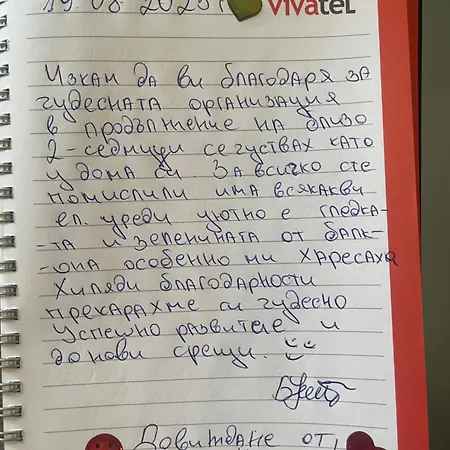 19.08.2023г
vivatel
Искам да ви благодаря за
чудесната организация
в продължение на близо
2-седмици се чуствах като
у дома си. За всичко сте
помислили има всякакви
ел. уреди уютно е гледка-
-та и зеленината от балк-
-она особенно ми харесаха
Хиляди благодарности
прекарахме си чудесно
Успешно развитие и
до нови срещи.
Довиждане от